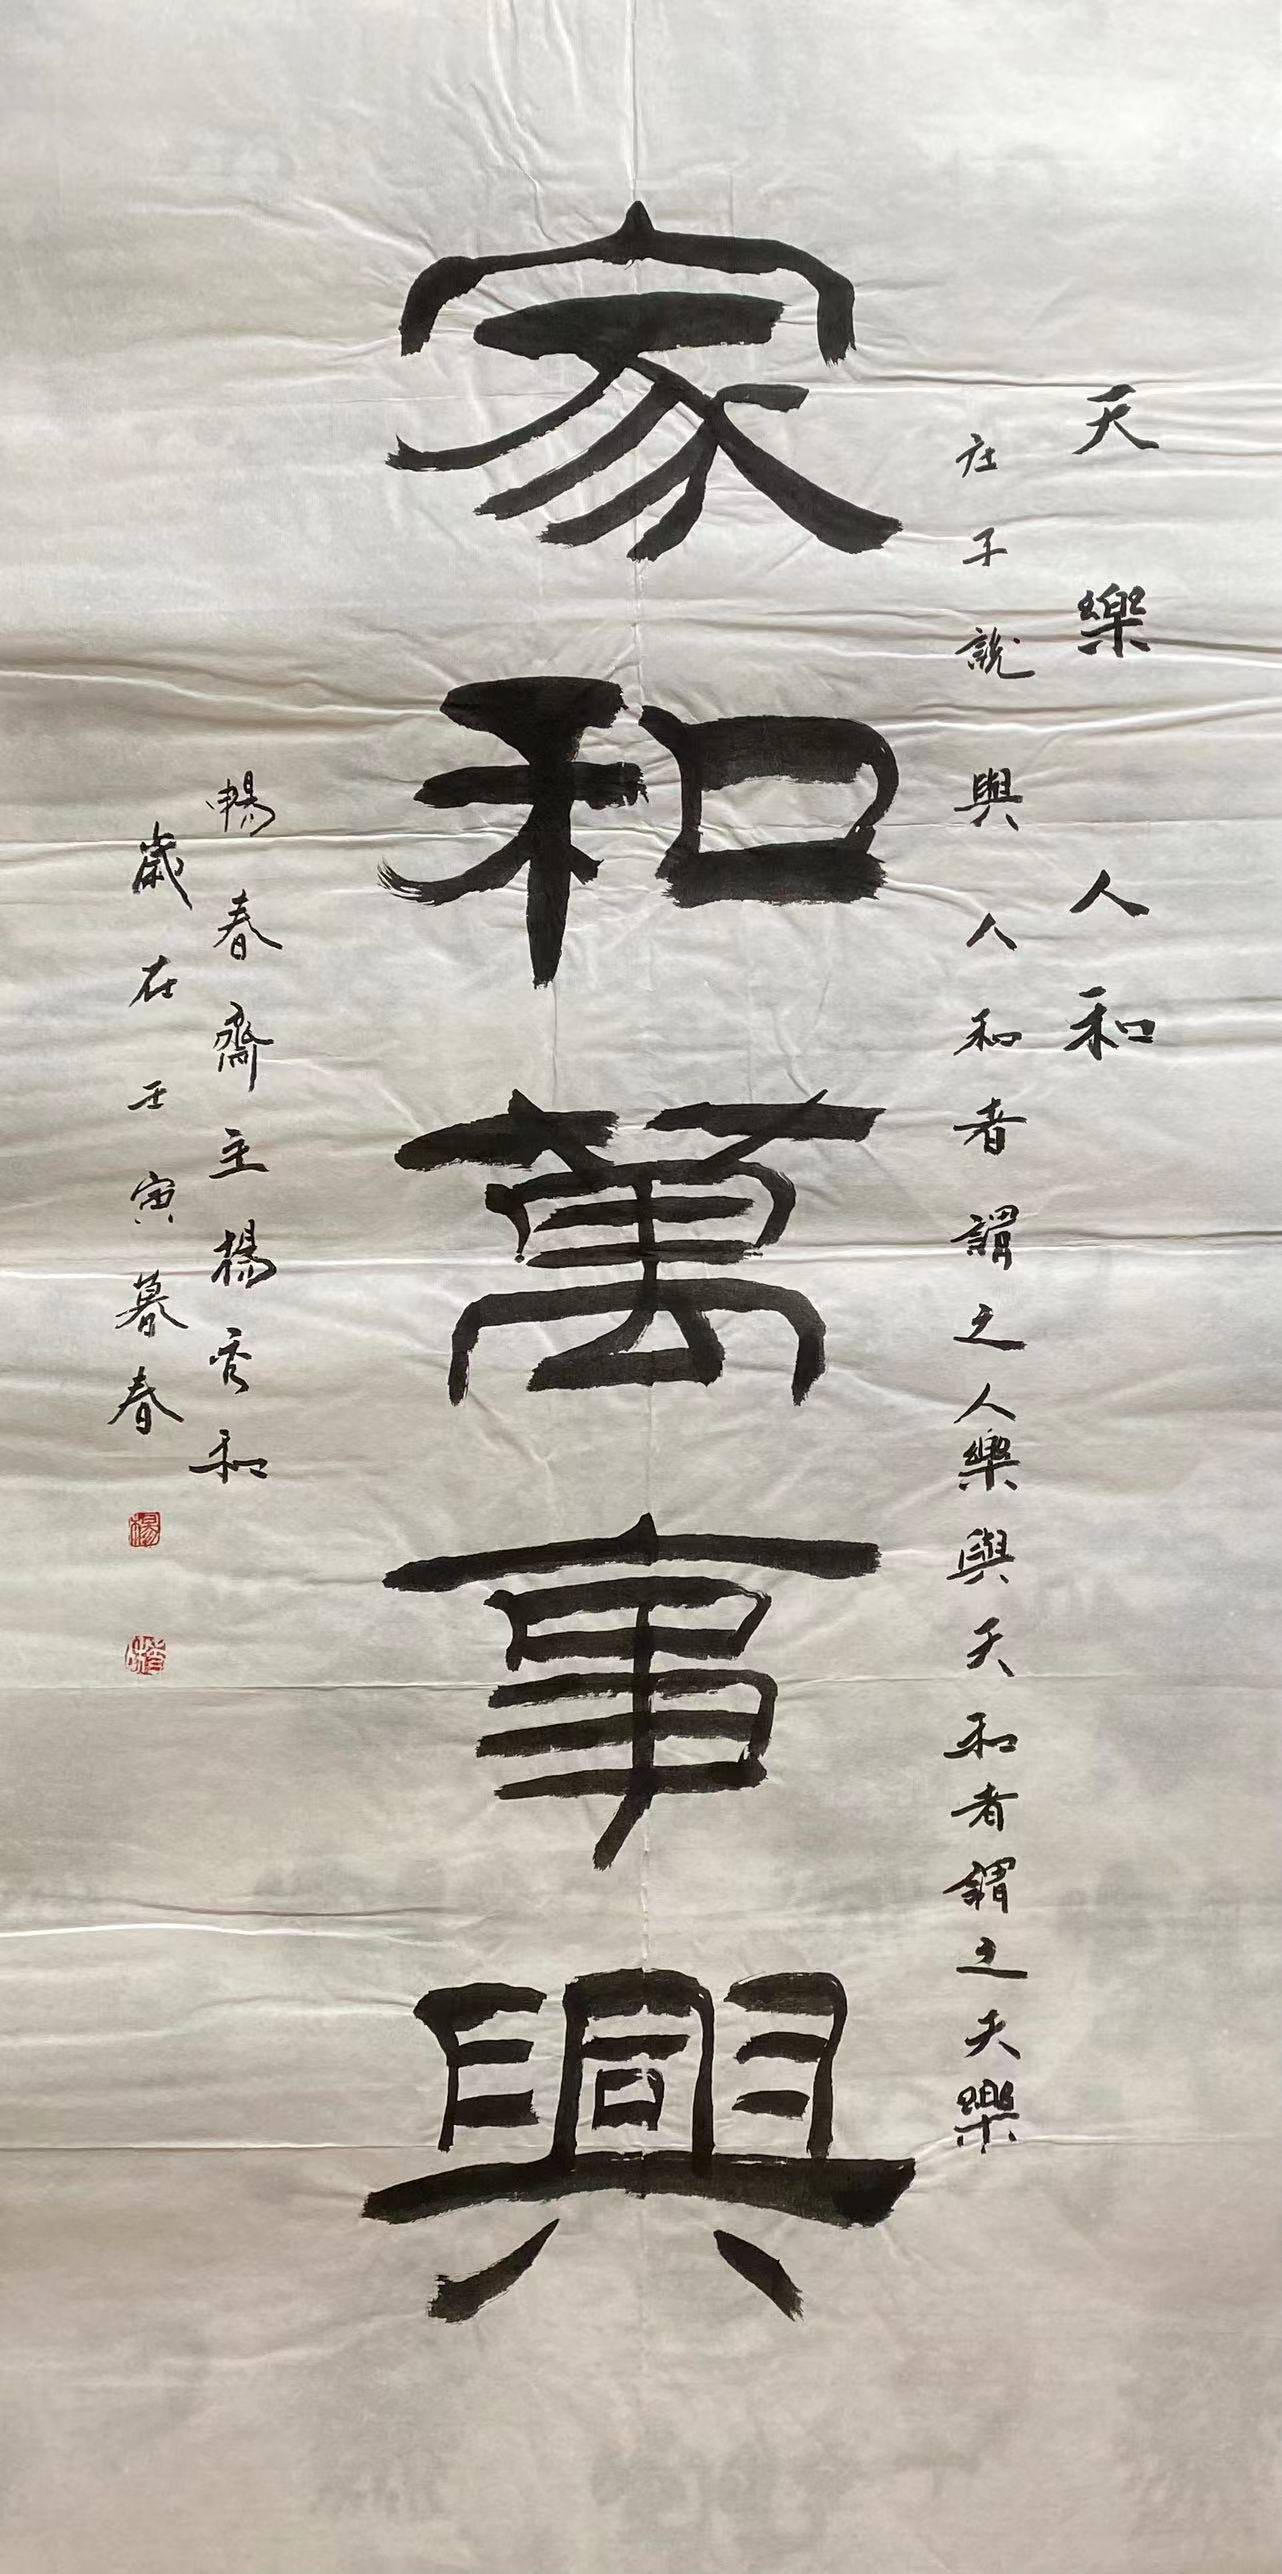 天樂人和
庄子說與人和者謂之人樂與天和者謂之天樂
家和萬事興
暢春齋主楊秀和
歲在壬寅暮春
楊